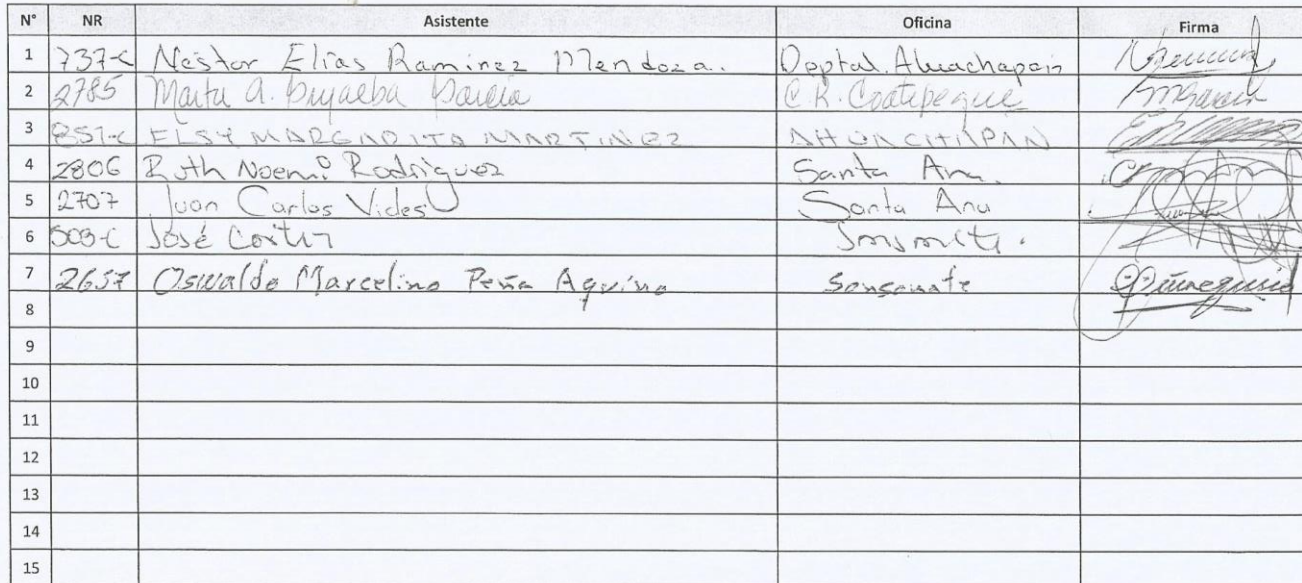 N° NR Asistente Oficina Firma
1 737-C Nestor Elias Ramirez Mendoza. Deptal. Ahuachapan
2 2785 Marta a. C.R. Coatepeque
3 851-C ELSY MARGARITA MARTINEZ AHUACHAPAN
4 2806 Ruth Noemi Rodriguez Santa Ana.
5 2707 Juan Carlos Vides Santa Ana
6 503-C José
7 2657 Oswaldo Marcelino Peña Aquino Sonsonate
8
9
10
11
12
13
14
15